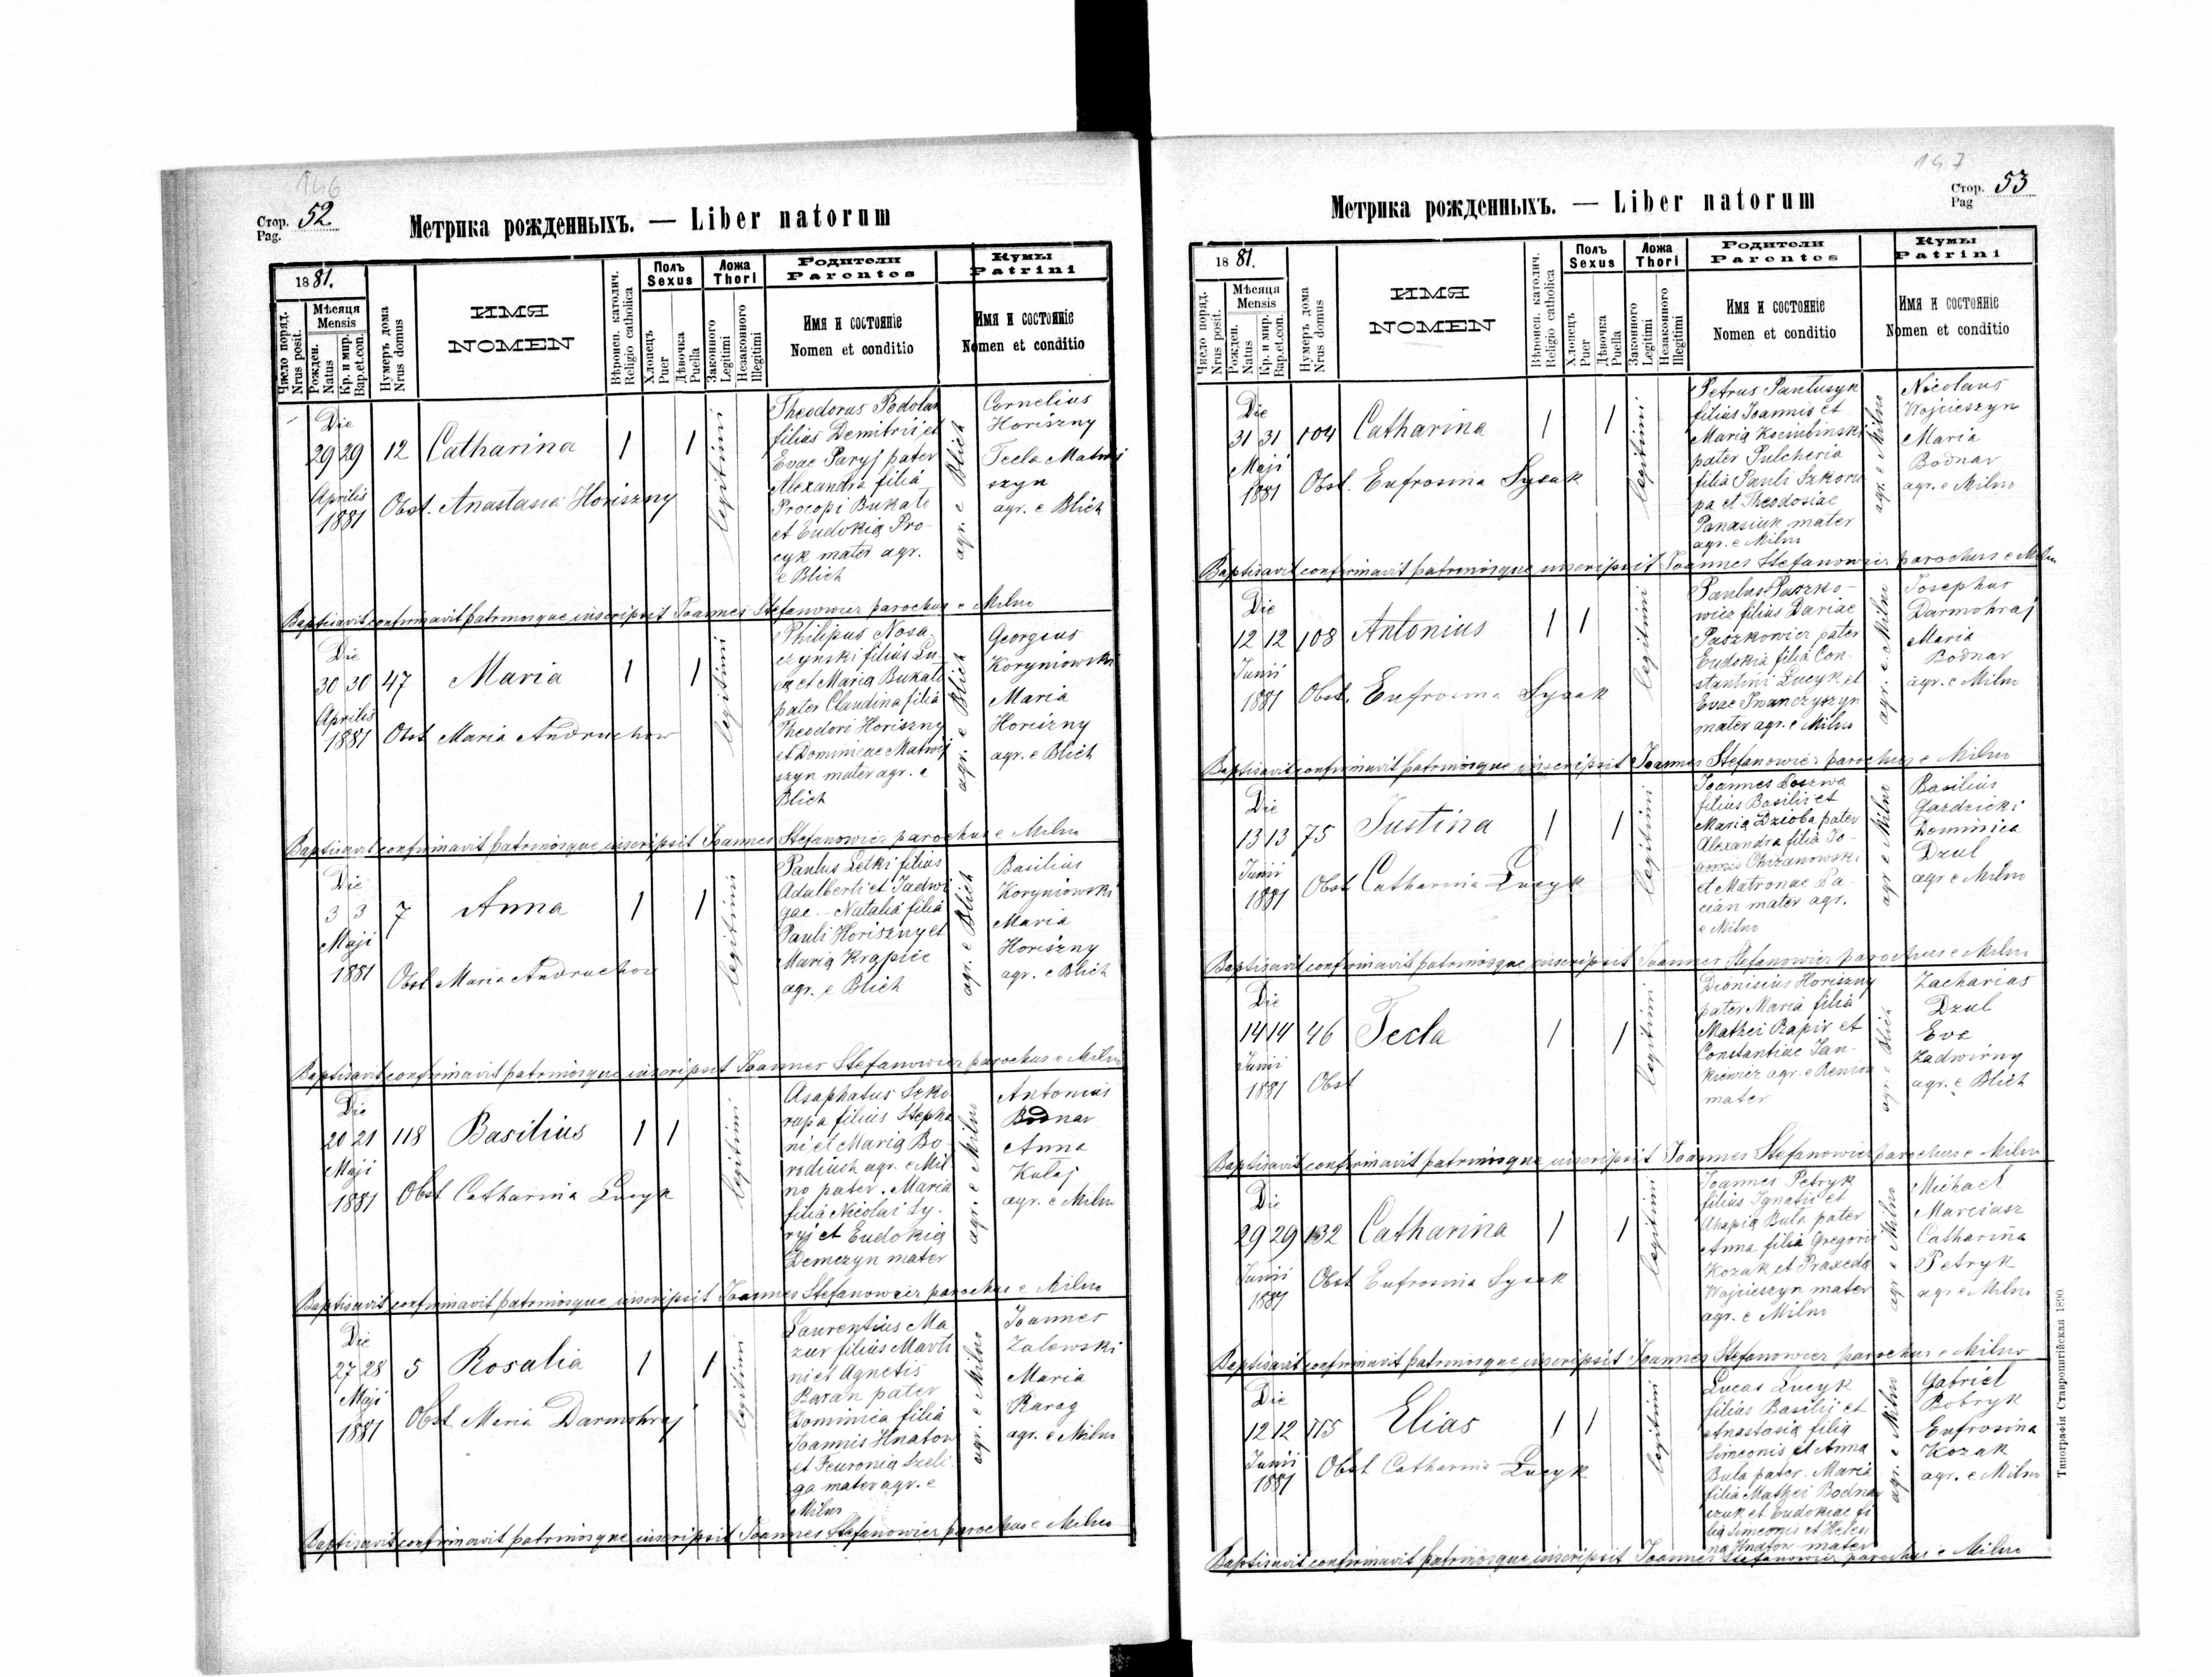 146
Стор. 52
Pag.
Метрика рожденныхъ. — Liber natorum
1881.
Число поряд.
Nrus posit.
Мѣсяця
Mensis
Рожден.
Natus
Кр. и мир.
Bap.et.con.
Нумеръ дома
Nrus domus
ИМЯ
NOMEN
Вѣроисп. католич.
Religio catholica
Полъ
Sexus
Хлопець
Puer
Дѣвочка
Puella
Ложа
Thori
Законного
Legitimi
Незаконного
Illegitimi
Родители
Parentes
Имя и состояніе
Nomen et conditio
Кумы
Patrini
Имя и состояніе
Nomen et conditio
Die
29 29 12 Catharina 1 1 legitimi
Aprilis
1881
Obst. Anastasia Horiszny
Theodorus Podolan
filius Demitrii et
Evae Paryj pater
Alexandra filia
Procopi Bukato
et Eudokia Pro-
cyk mater agr.
e Blich
agr. e Blich
Cornelius
Horiszny
Tecla Matwij
szyn
agr. e Blich
Baptisavit confirmavit patrinosque inscripsit Joannes Stefanowicz parochus e Milno
Die
30 30 47 Maria 1 1 legitimi
Aprilis
1881 Obst Maria Andruchow
Philipus Nosa-
czynski filius Lu-
ca et Maria Bukato
pater Claudina filia
Theodori Horiszny
et Dominicae Matwij
szyn mater agr. e
Blich
agr. e Blich
Georgius
Koryniowski
Maria
Horiszny
agr. e Blich
Baptisavit confirmavit patrinosque inscripsit Joannes Stefanowicz parochus e Milno
Die
3 3 7 Anna 1 1 legitimi
Maji
1881 Obst Maria Andruchow
Paulus Letki filius
Adalberti et Jadwi
gae - Natalia filia
Pauli Horiszny et
Maria Krapiie
agr. e Blich
agr. e Blich
Basilius
Koryniowski
Maria
Horiszny
agr. e Blich
Baptisavit confirmavit patrinosque inscripsit Joannes Stefanowicz parochus e Milno
Die
20 21 118 Basilius 1 1 legitimi
Maji
1881 Obst Catharina Lucyk
Asaphatus Szko
rupa filius Stepha
ni et Maria Bo-
rodiuch agr. e Mil
no pater. Maria
filia Nicolai Sy-
ryj et Eudokia
Demczyn mater
agr. e Milno
Antonius
Bodnar
Anna
Kulaj
agr. e Milno
Baptisavit confirmavit patrinosque inscripsit Joannes Stefanowicz parochus e Milno
Die
27 28 5 Rosalia 1 1 legitimi
Maji
1881 Obst Maria Darmohraj
Laurentius Ma
zur filius Marti
ni et Agnetis
Baran pater
Dominica filia
Joannis Hnatow
et Feuronia Szeli
ga mater agr. e
Milno
agr. e Milno
Joannes
Zalewski
Maria
Karag
agr. e Milno
Baptisavit confirmavit patrinosque inscripsit Joannes Stefanowicz parochus e Milno
147
Стор. 53
Pag
Метрика рожденныхъ. — Liber natorum
1881.
Число поряд.
Nrus posit.
Мѣсяця
Mensis
Рожден.
Natus
Кр. и мир.
Bap.et.con.
Нумеръ дома
Nrus domus
ИМЯ
NOMEN
Вѣроисп. католич.
Religio catholica
Полъ
Sexus
Хлопець
Puer
Дѣвочка
Puella
Ложа
Thori
Законного
Legitimi
Незаконного
Illegitimi
Родители
Parentes
Имя и состояніе
Nomen et conditio
Кумы
Patrini
Имя и состояніе
Nomen et conditio
Die
31 31 104 Catharina 1 1 legitimi
Maji
1881 Obst. Eufrosina Sysak
Petrus Pantusyk
filius Joannis et
Maria Kocinbinski
pater Pulcheria
filia Pauli Szkoru
pa et Theodosiae
Panasiuk mater
agr. e Milno
agr. e Milno
Nicolaus
Wojcieszyn
Maria
Bodnar
agr. e Milno
Baptisavit confirmavit patrinosque inscripsit Joannes Stefanowicz parochus e Milno
Die
12 12 108 Antonius 1 1 legitimi
Junii
1881 Obst. Eufrosina Sysak
Paulus Paszko-
wicz filius Dariae
Paszkowicz pater
Eudokia filia Con-
stantini Lucyk et
Evae Iwanczyszyn
mater agr. e Milno
agr. e Milno
Josephus
Darmohraj
Maria
Bodnar
agr. e Milno
Baptisavit confirmavit patrinosque inscripsit Joannes Stefanowicz parochus e Milno
Die
13 13 75 Justina 1 1 legitimi
Junii
1881 Obst Catharina Lucyk
Joannes Loszwa
filius Basilii et
Maria Dzioba pater
Alexandra filia Jo-
annis Chrzanowski
et Matronae Pa-
cian mater agr.
e Milno
agr e Milno
Basilius
Gazdzicki
Dominica
Dzul
agr e Milno
Baptisavit confirmavit patrinosque inscripsit Joannes Stefanowicz parochus e Milno
Die
14 14 46 Tecla 1 1 legitimi
Junii
1881 Obst
Dionisius Horiszny
pater Maria filia
Mathei Rapir et
Constantiae Jan-
kiewicz agr. e Reniow
mater
agr. e Blich
Zacharias
Dzul
Eva
Zadwirny
agr. e Blich
Baptisavit confirmavit patrinosque inscripsit Joannes Stefanowicz parochus e Milno
Die
29 29 132 Catharina 1 1 legitimi
Junii
1881 Obst Eufrosina Sysak
Joannes Petryk
filius Ignatii et
Ahapia Bula pater
Anna filia Gregorii
Kozak et Praxeda
Wojcieszyn mater
agr. e Milno
agr e Milno
Michael
Marciasz
Catharina
Petryk
agr e Milno
Baptisavit confirmavit patrinosque inscripsit Joannes Stefanowicz parochus e Milno
Die
12 12 115 Elias 1 1 legitimi
Junii
1881 Obst Catharina Lucyk
Lucas Lucyk
filius Basilii et
Anastasia filia
Simeonis et Anna
Bula pater. Maria
filia Mathei Bodnar
czuk et Eudokiae fi
lia Simeonis et Hele
na Hnatow mater
agr. e Milno
Gabriel
Bobryk
Eufrosina
Kozak
agr. e Milno
Baptisavit confirmavit patrinosque inscripsit Joannes Stefanowicz parochus e Milno
Типографія Ставропигійская 1890